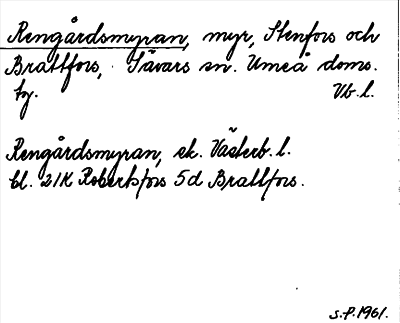 Rengårdsmyran, myr, Stenfors och
Brattfors, Sävars sn. Umeå doms.
tg. Vb. l.
Rengårdsmyran, ek. Västerb. l.
bl. 21K Robertsfors 5d Brattfors.
S.P. 1961.